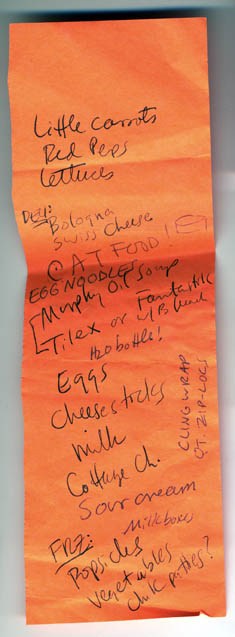 Little carrots
Red Peps
Lettuces
DELI:
Bologna
Swiss Cheese
CAT FOOD!
EGG NOODLES
Murphy Oil Soap
Tilex or Fantastik
w/ Bleach
H2O bottle!
Eggs
Cheesesticks
Milk
Cottage Ch.
CLING WRAP
QT. ZIP-LOCS
Sour cream
Milk boxes
FRZ:
Popsicles
Vegetables
Chik patties?